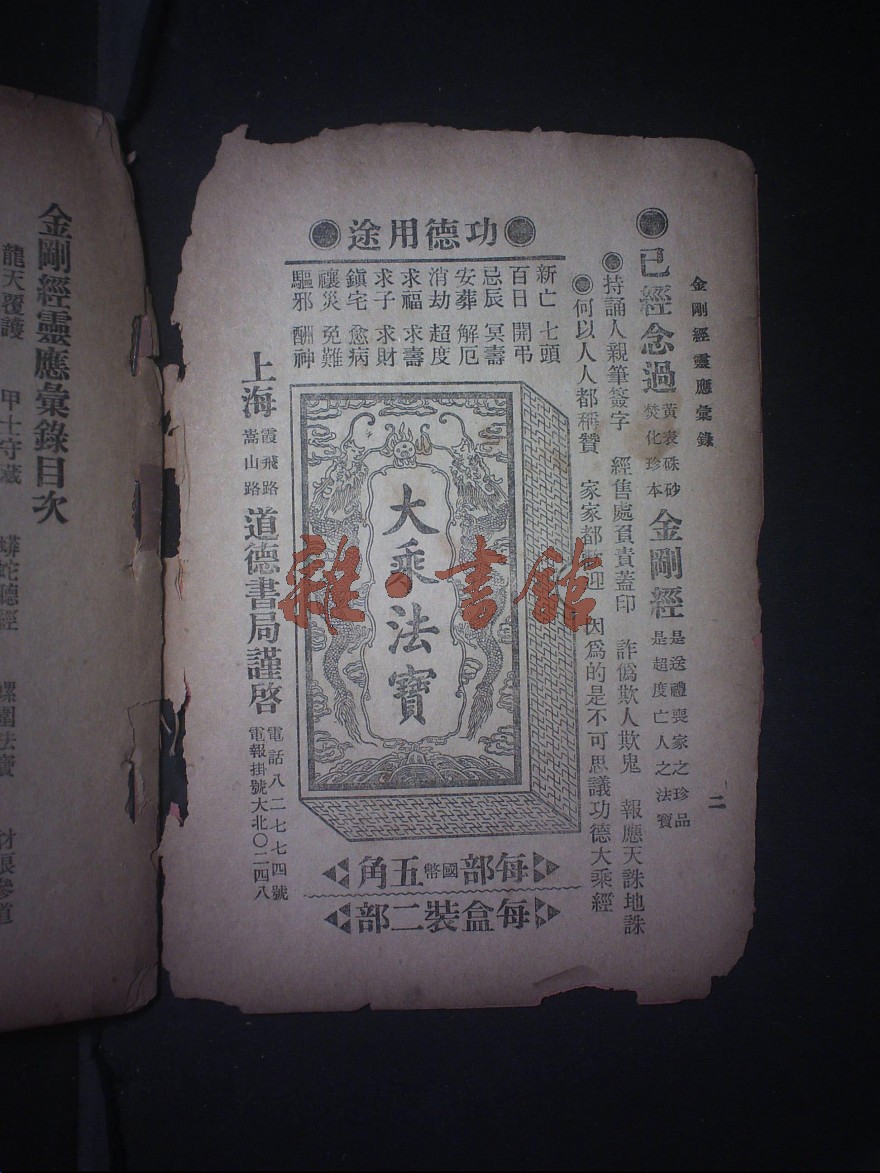 金剛經靈應彙錄
二
●已經念過
黃表硃砂
焚化珍本
金剛經
是送禮喪家之珍品
是超度亡人之法寶
●持誦人親筆簽字 經售處負責蓋印 詐偽欺人欺鬼 報應天誅地誅
●何以人人都稱贊 家家都歡迎 因爲的是不可思議功德大乘經
●功德用途●
新亡 七頭
百日 開弔
忌辰 冥壽
安葬 解厄
消劫 超度
求福 求壽
求子 求財
鎭宅 愈病
禳災 免難
驅邪 酬神
大乘法寶
每部國幣五角
每盒裝二部
上海
霞飛路
嵩山路
道德書局謹啓
電話八二七七四號
電報掛號大北〇二四八
雜·書館
金剛經靈應彙錄目次
龍天覆護 甲士守藏 蟒蛇聽經 螺圍法寶